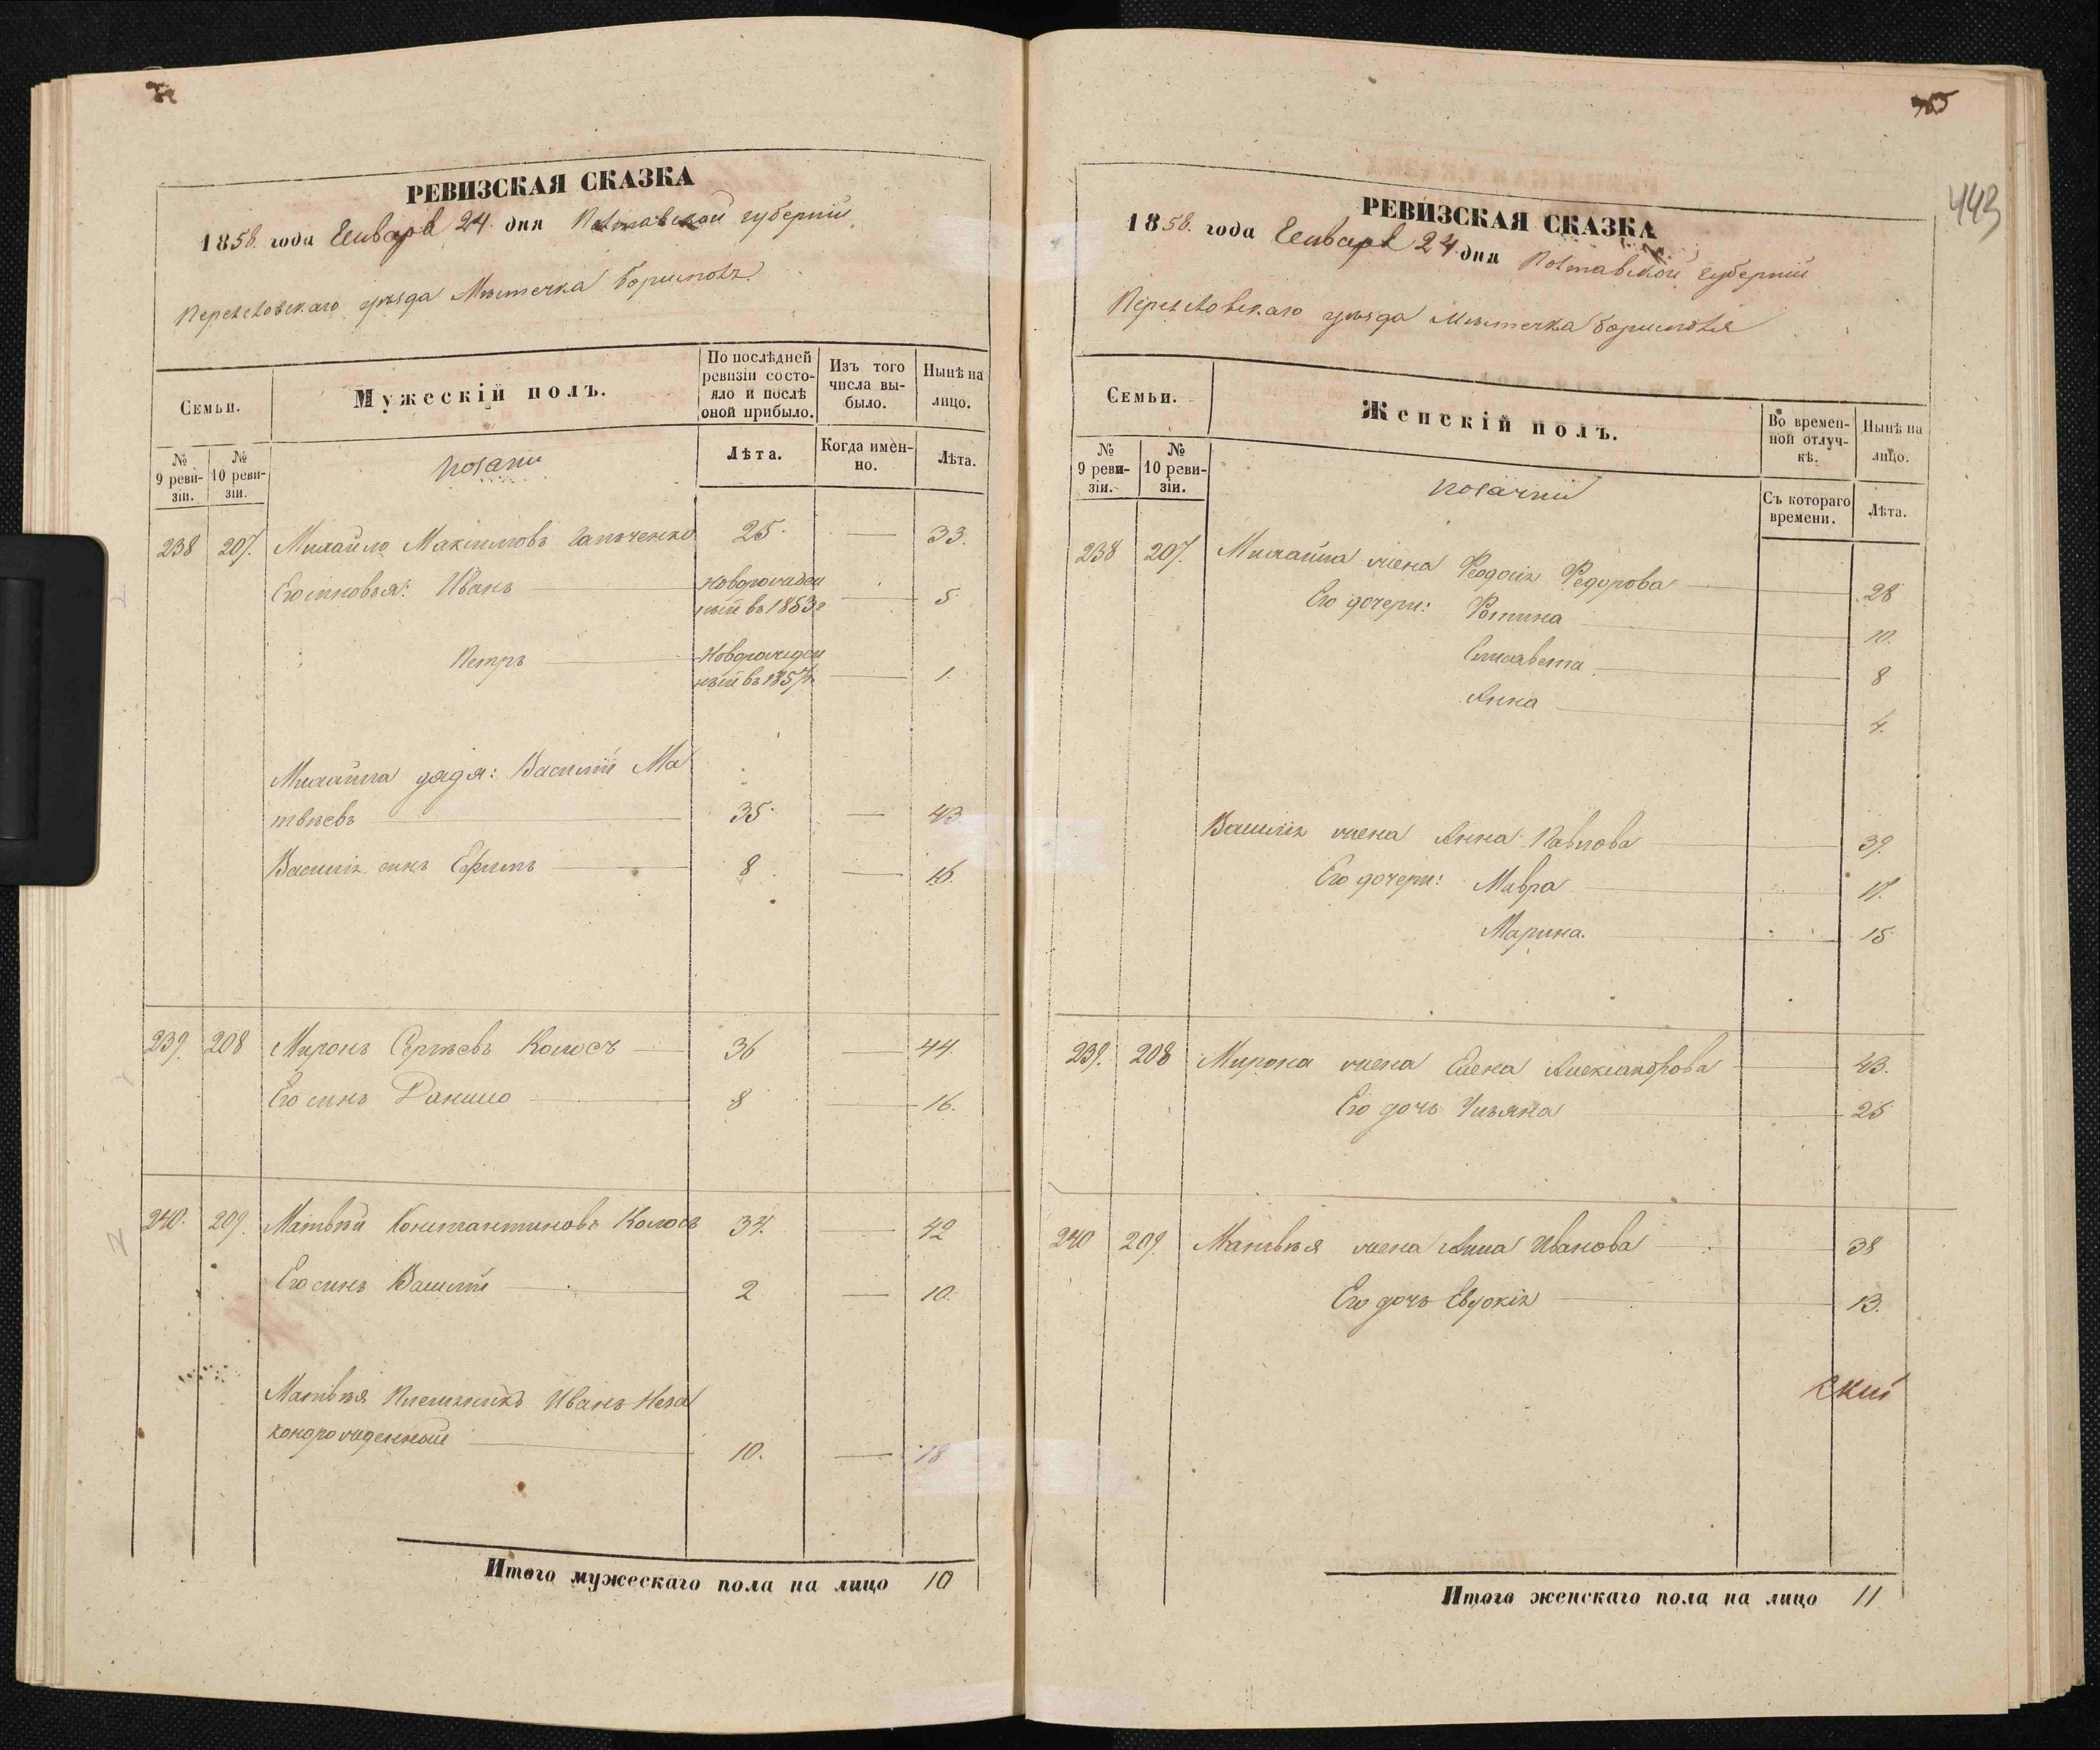 РЕВИЗСКАЯ СКАЗКА
1858. года Генваря 24. дня Полтавской губерніи
Переясловскаго уѣзда Мѣстечка Борисполя
Семьи.
Мужескій полъ.
По послѣдней ревизіи состояло и послѣ оной прибыло.
Изъ того числа выбыло.
Нынѣ на лицо.
№ 9 ревизіи.
№ 10 ревизіи.
Козаки
Лѣта.
Когда именно.
Лѣта.
238 207. Михайло Максимовъ 25. — 33.
Его сыновья: Иванъ Новорожденный въ 1853г — 5.
Петръ Новорожденный въ 1857г — 1.
Михайла дядя: Василій Ма
твѣевъ 35. — 43
Василія сынъ Ефимъ 8 — 16.
239. 208 Миронъ Сергѣевъ Колосъ 36 — 44.
Его сынъ Данило 8 — 16.
240. 209. Матвѣй Константиновъ Колосъ 34. — 42
Его сынъ Василій 2 — 10.
Матвѣя Племянникъ Иванъ Неза
конорожденный 10. — 18
Итого мужескаго пола на лицо 10
443
РЕВИЗСКАЯ СКАЗКА
1858. года Генваря 24 дня Полтавской губерніи
Переясловскаго уѣзда Мѣстечка Борисполя
Семьи.
Женскій полъ.
Во временной отлучкѣ.
Нынѣ на лицо.
№ 9 ревизіи.
№ 10 ревизіи.
Козачки
Съ котораго времени.
Лѣта.
238 207. Михайла жена Феодосія Федорова 28
Его дочери: Фотина 10.
Елисавета 8
Анна 4.
Василія жена Анна Павлова 39.
Его дочери: Мавра 17.
Марина. 15
239. 208 Мирона жена Елена Александрова 43.
Его дочь Ульяна 25
240 209. Матвѣя жена Анна Иванова 38
Его дочь Евдокія 13.
скій
Итого женскаго пола на лицо 11